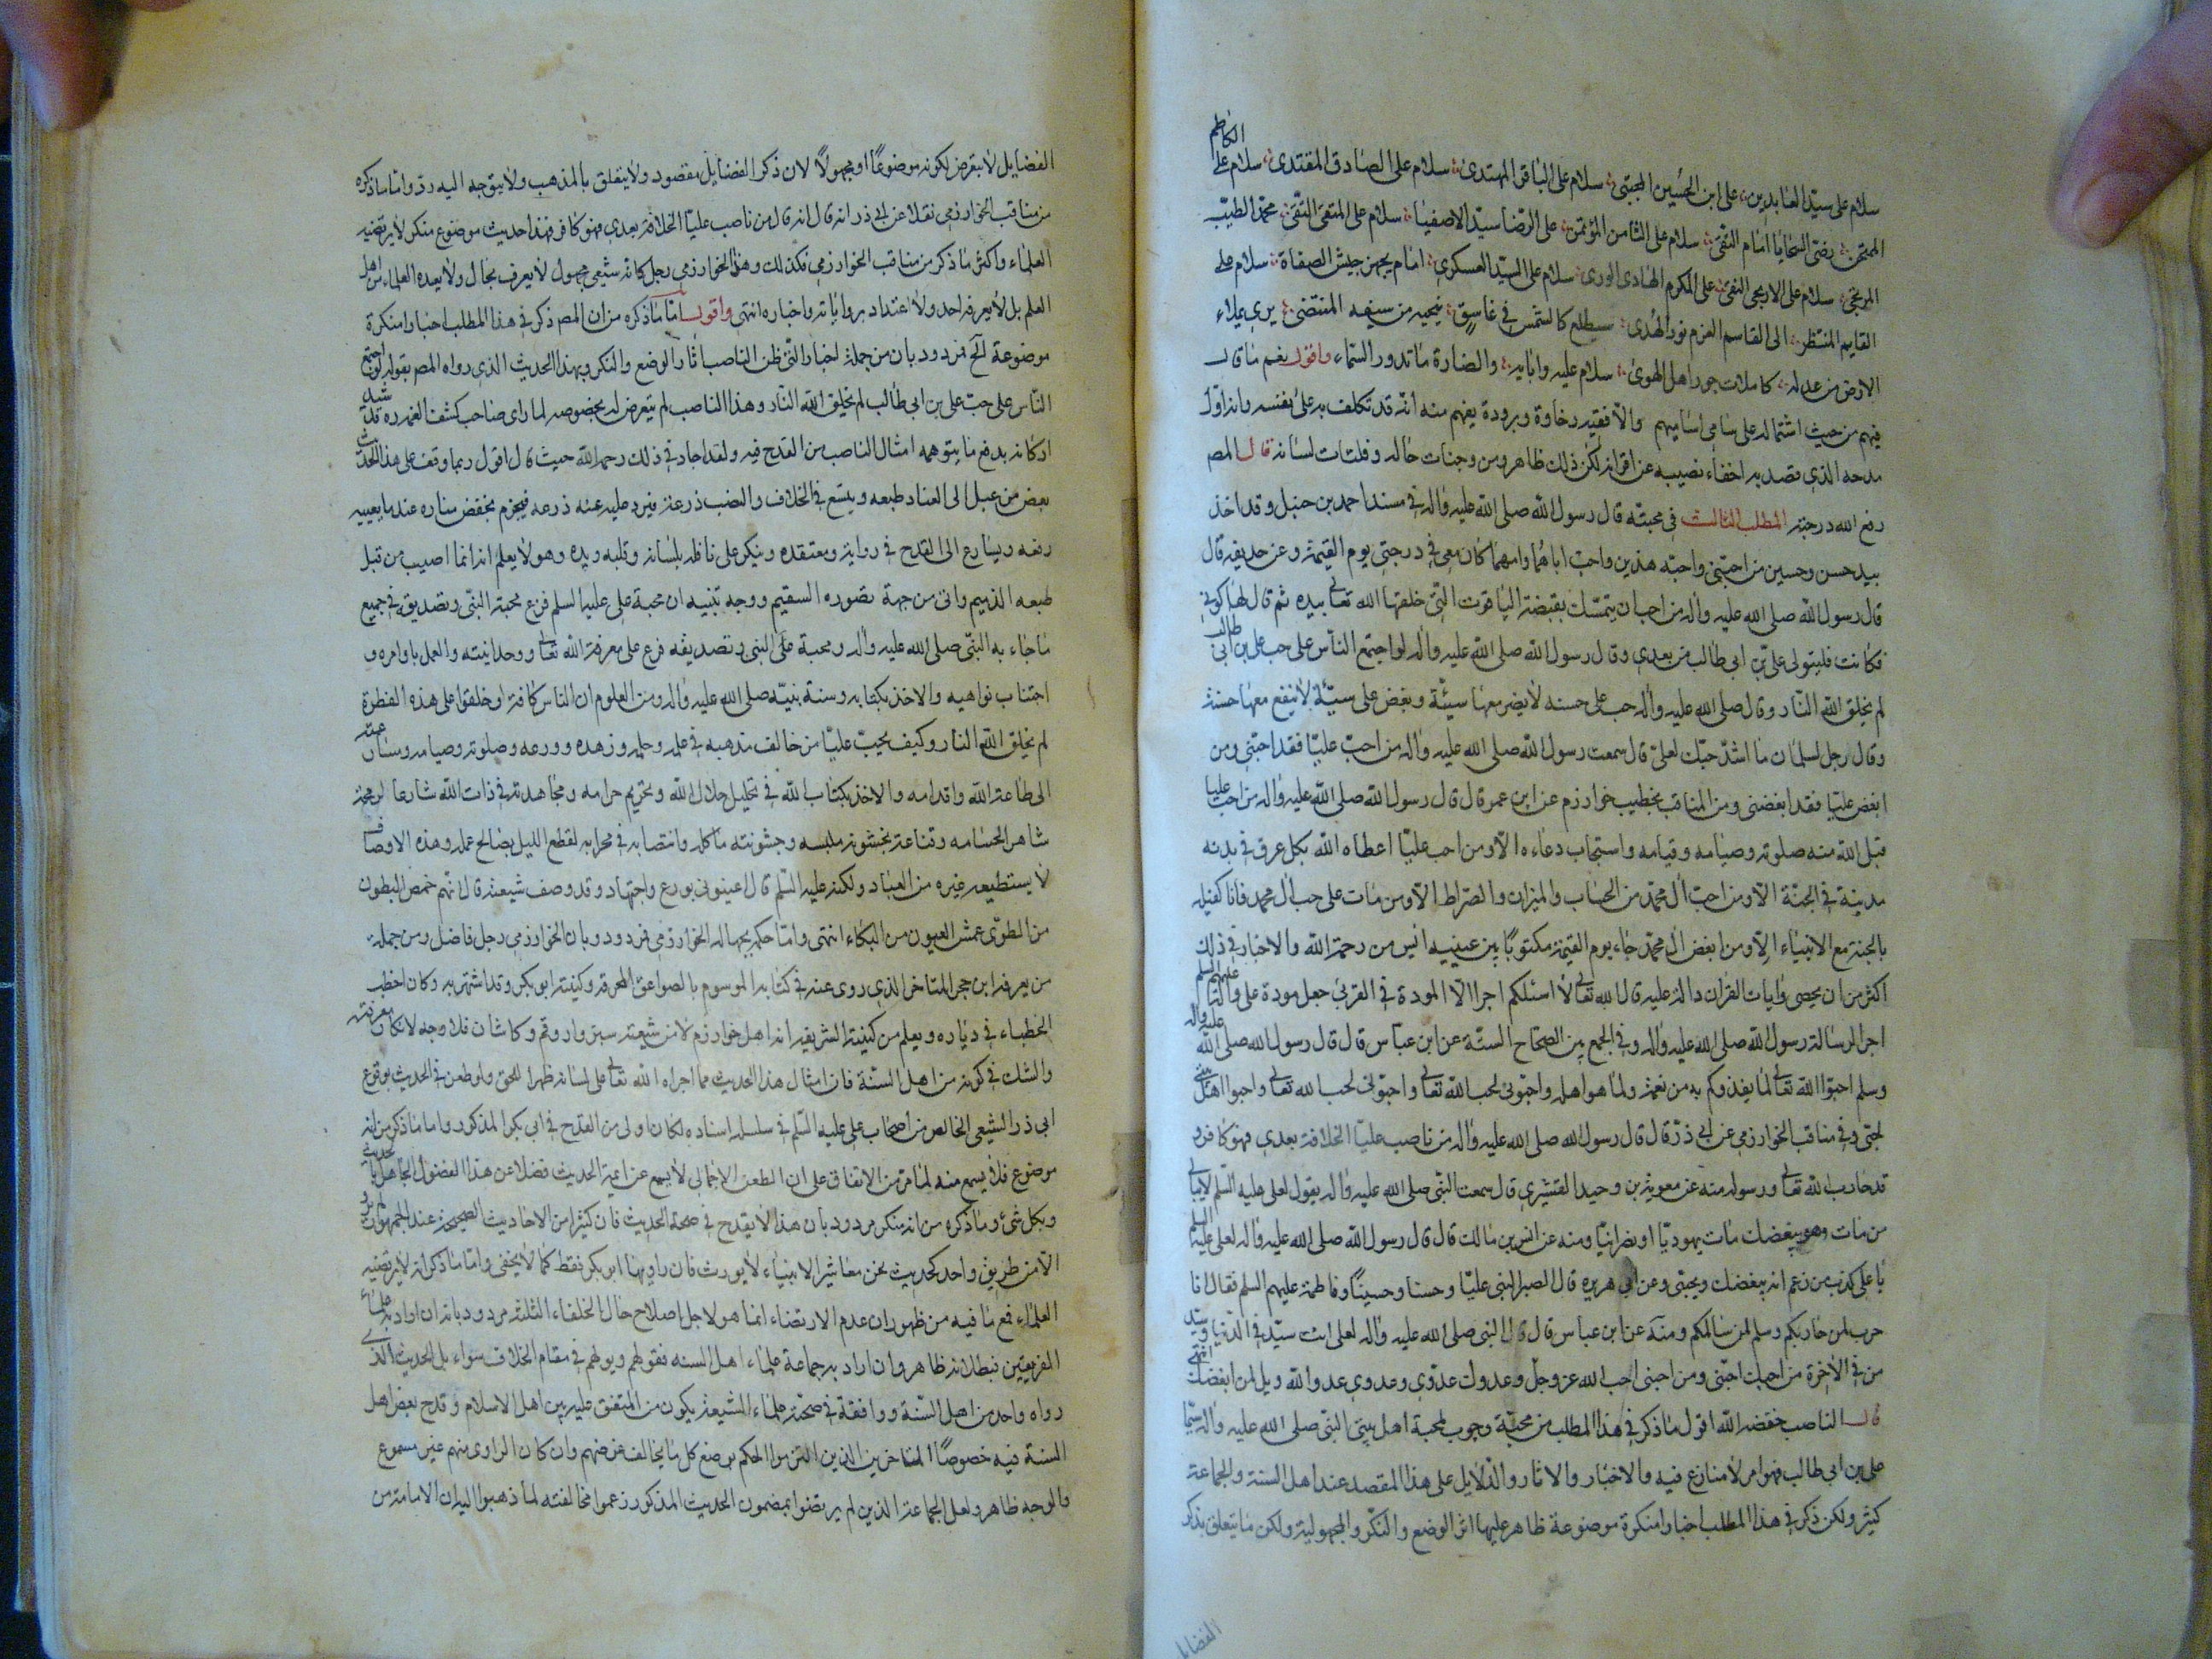 الكاظم
سلام على سيّد العابدين على ابن الحسين المجتبى سلام على الباقر المهتدى سلام على الصادق المقتدى سلام على
الممتحن رضىّ السجايا امام التقى سلام على الثامن المؤتمن على الرضا سيّد الاصفيا سلام على المتقى التقى محمد الطيّب
المرتجى سلام على الاريحى النقى على المكرم الهادى الورى سلام على السيّد العسكرى امام يجهز جيش الصفاة سلام على
القايم المنتظر الى القاسم العزم نور الهدى سيطلع كالشمس فى غاسق ينجيه من سيفه المنتضى يرى يملاء
الارض من عدله كما ملات جور اهل الهوى سلام عليه وابايه والضارة ما تدور السماء واقول نعم ما قال
فيهم من حيث اشتماله على سامى اساميهم والّا ففيه رخاوة وبرودة يفهم منه انّه قد تكلف به على نفسه وان اوّل
مدحه الذى قصد به اخفاء نصيبه عن اقرانه لكن ذلك ظاهر من وجنات حاله وفلتات لسانه قال المص
رفع الله درجته المطلب الثالث فى محبّته قال رسول الله صلى الله عليه واله فى مسند احمد بن حنبل وقد اخذ
بيد حسن وحسين من احبّنى واحبّ هذين واحب اباهما وامهما كان معى فى درجتى يوم القيمة وعن حذيفه قال
قال رسول الله صلى الله عليه واله من احب ان يتمسّك بقبضة الياقوت التى خلقها الله تعالى بيده ثم قال لها كونى
فكانت فليتولى علىّ بن ابى طالب من بعدى وقال رسول الله صلى الله عليه واله لو اجتمع الناس على حب على بن ابى طالب
لم يخلق الله النار وقال صلى الله عليه واله حب على حسنه لا يضر معها سيئة وبغض على سيّئة لا ينفع معها حسنة
وقال رجل لسلمان ما اشدّ حبّك لعلىّ قال سمعت رسول الله صلى الله عليه واله من احبّ عليّا فقد احبّنى ومن
ابغض عليّا فقد ابغضنى ومن المناقب لخطيب خوارزم عن ابن عمر قال قال رسول الله صلى الله عليه واله من احب عليا
قبل الله منه صلوته وصيامه وقيامه واستجاب دعاءه الّا ومن احب عليّا اعطاه الله بكل عرق فى بدنه
مدينة فى الجنّة الّا ومن احبّ ال محمّد من الحساب والميزان والصّراط الّا ومن مات على حب ال محمد فانا كفيله
بالجنة مع الانبياء الّا ومن ابغض ال محمّد جاء يوم القيمة مكتوبًا بين عينيه ايس من رحمة الله والاخبار فى ذلك
اكثر من ان يحصى وايات القران دالة عليه قال الله تعالى لا اسئلكم اجرا الّا المودة فى القربى جعل مودة على والنّا عليهم السلم
اجر الرسالة رسول الله صلى الله عليه واله وفى الجمع بين الصحاح الستّة عن ابن عباس قال قال رسول الله صلى الله عليه واله
وسلم احبّوا الله تعالى لما يغذوكم به من نعمة ولما هو اهله واحبّونى لحب الله تعالى واحبّوا اهل بيتى
لحبّى وفى مناقب الخوارزمى عن ابى ذرّ قال قال رسول الله صلى الله عليه واله من ناصب عليّا الخلافة بعدى فهو كافر و
قد حارب الله تعالى ورسوله منه عن معوية بن وحيد القشيرى قال سمعت النبّى صلى الله عليه واله يقول لعلى عليه السّلم لا يبالى
من مات وهو يبغضك مات يهوديّا او نصرانيّا ومنه عن انس بن مالك قال قال رسول الله صلى الله عليه واله لعلى عليه السلم
يا على كذب من زعم انه يبغضك ويحبّنى وعن ابى هريره قال ابصر النبى عليّا وحسنا وحسينًا وفاطمة عليهم السلم فقال انا
حرب لمن حاربكم وسلم لمن سالمكم ومنه عن ابن عباس قال قال النبى صلى الله عليه واله لعلى انت سيّد فى الدّنيا وسيّد
من فى الاخرة من احبك احبّنى ومن احبنى احب الله عز وجلّ وعدوك عدوّى وعدوى عدو الله ويل لمن ابغضك انتهى
قال الناصب خفضه الله اقول ما ذكر فى هذا المطلب من محبّة وجوب لمحبة اهل بيتى النبّى صلى الله عليه واله سيّما
على بن ابى طالب فهو امر لا منازع فيه والاخبار والاثار والدّلايل على هذا المقصد عند اهل السنة والجماعة
كثير ولكن ذكر فى هذا المطلب اخبارا منكرة موضوعة ظاهر عليها اثر الوضع والنّكر والمجهولية ولكن ما يتعلق بذكر
الفضايل
الفضايل لا يتعرض لكونه موضوعًا او مجهولًا لان ذكر الفضايل مقصود ولا يتعلق بالمذهب ولا يتوجه اليه ردّ وامّا ما ذكره
من مناقب الخوارزمى نقلا عن ابى ذر انه قال انه قال من ناصب عليّا الخلافة بعدى فهو كافر فهذا حديث موضوع منكر لا يرتضيه
العلماء واكثر ما ذكر من مناقب الخوارزمى فكذلك وهذا الخوارزمى رجل كانه شيعى مجهول لا يعرف بحال ولا يعده العلماء من اهل
العلم بل لا يعرفه احد ولا اعتداد برواياته واخباره انتهى واقول امّا ما ذكره من ان المص ذكر فى هذا المطلب اخبارا منكرة
موضوعة الخ فمردود بان من جملة اخبار التى ظن الناصب اثار الوضع والنكر وبهذا الحديث الذى رواه المص بقوله لو اجتمع
النّاس على حبّ على بن ابى طالب لم يخلق الله النّار وهذا الناصب لم يتعرض له بخصوصه لما راى صاحب كشف الغمه ره قد شيد
اركانه بدفع ما يتوهمه امثال الناصب من القدح فيه ولقد اجاد فى ذلك رحمه الله حيث قال اقول ربما وقف على هذا الحديث
بعض من عيل الى العناد طبعه ويتسع فى الخلاف والنصب ذرعه فيرد عليه عنه ذرعه فيجزم بخفض مناره عند ما يعييه
رفعه ويسارع الى القدح فى رواية ومعتقده وينكر على ناقله بلسانه وقلبه ويده وهو لا يعلم انه انما اصيب من قبل
طبعه الذميم واتى من جهة تصوره السقيم ووجه تنبيه ان محبة على عليه السلم فرع محبة النبّى وتصديقه فى جميع
ما جاء به النبّى صلى الله عليه واله ومحبة على النبى وتصديقه فرع على معرفة الله تعالى ووحدانيته والعمل باوامره و
اجتناب نواهيه والاخذ بكتابه وسنة نبيّه صلى الله عليه واله ومن المعلوم ان الناس كافة لو خلقوا على هذه الفطرة
لم يخلق الله النار وكيف يحبّ عليّا من خالف مذهبه فى علمه وحلمه وزهده وورعه وصلوته وصيامه ومسارعته
الى طاعة الله واقدامه والاخذ بكتاب الله فى تحليل حلال الله وتحريم حرامه ومجاهدته فى ذات الله شارعا لرمحه
شاهر الحسامه وقناعة بخشونة ملبسه وجشوبة ماكله وانتصابه فى محرابه لقطع الليل بصالح عمله وهذه الاوصاف
لا يستطيعه غيره من العباد ولكنه عليه السّلم قال اعينونى بورع واجتهاد وقد وصف شيعته قال انّهم خمص البطون
من الطوى عمش العيون من البكاء انتهى وامّا حكمه بجهالة الخوارزمى فمردود بان الخوارزمى رجل فاضل ومن جملة
من يعرفه ابن حجر المتاخر الذى روى عنه فى كتابه الموسوم بالصواعق المحرقه وكنيته ابو بكر وقد اشتهر به وكان اخطب
الخطباء فى دياره ويعلم من كنيته الشريفه انه اهل خوارزم لا من شيعة سبزوار وقم وكاشان فلا وجه لانكار معرفته
والشك فى كونه من اهل السنّة فان امثال هذا الحديث مما اجراه الله تعالى على لسانه ظهرا للحق ولو طعن فى الحديث بوقوع
ابى ذر الشيعى الخالص من اصحاب على عليه السّلم فى سلسلة اسناده لكان اولى من القدح فى ابى بكر المذكور واما ما ذكر من انه
موضوع فلا يسمع منه لما مر من الاتفاق على ان الطعن الاجمالى لا يسمع عن ايمة الحديث فضلا عن هذا الفضول الجاهل بالحديث
وبكل شئ وما ذكره من انه منكر مردود بان هذا لا يقدح فى صحة الحديث فان كثيرا من الاحاديث الصحيحة عند الجمهور لم ترو
الّا من طريق واحد كحديث نحن معاشر الانبياء لا يورث فان راويها ابو بكر فقط كما لا يخفى وامّا ما ذكر انه لا يرتضيه
العلماء فمع ما فيه من ظهور ان عدم الارتضاء انما هو لاجل اصلاح حال الخلفاء الثلثة مردود بانه ان اراد به علماء
الفريقين فبطلانه ظاهر وان اراد به جماعة علماء اهل السنه فقولهم وبولهم فى مقام الخلاف سواء بل الحديث الذى
رواه واحد من اهل السنّة ووافقه فى صحّته علماء الشيعة يكون من المتفق عليه بين اهل الاسلام وقدح بعض اهل
السنة فيه خصوصًا المتاخرين الذين التزموا الحكم بوضع كل ما يخالف غرضهم وان كان الراوى منهم غير مسموع
والوجه ظاهر ولعل الجماعة الذين لم يرتضوا بمضمون الحديث المذكور زعموا مخالفته لما ذهبوا اليه ان الامامة من